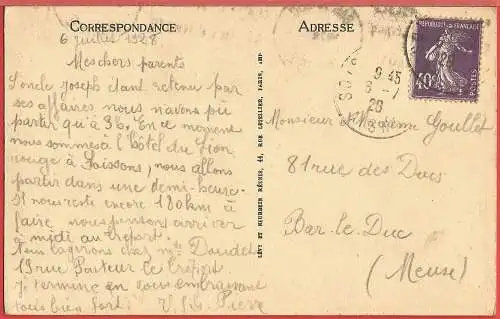 CORRESPONDANCE
6 juillet 1928
Mes chers parents
L'oncle Joseph étant retenu par
ses affaires nous n'avons pu
partir qu'à 3h. En ce moment
nous sommes à l'hôtel du Lion
rouge à Soissons, nous allons
partir dans une demi-heure.
Il nous reste encore 180km à
faire nous pensons arriver
à midi au Tréport.
Nous logerons chez Mme Doudet
13 rue Pasteur le Tréport
Je termine en vous embrassant
tous bien fort. V. fils Pierre
LÉVY ET NEURDEIN RÉUNIS, 44, RUE LETELLIER, PARIS, IMP.
ADRESSE
RÉPUBLIQUE FRANÇAISE
40c
POSTES
9 45
6 - 7
28
Monsieur et Madame Goullet
81 rue des Ducs
Bar-le-Duc
(Meuse)